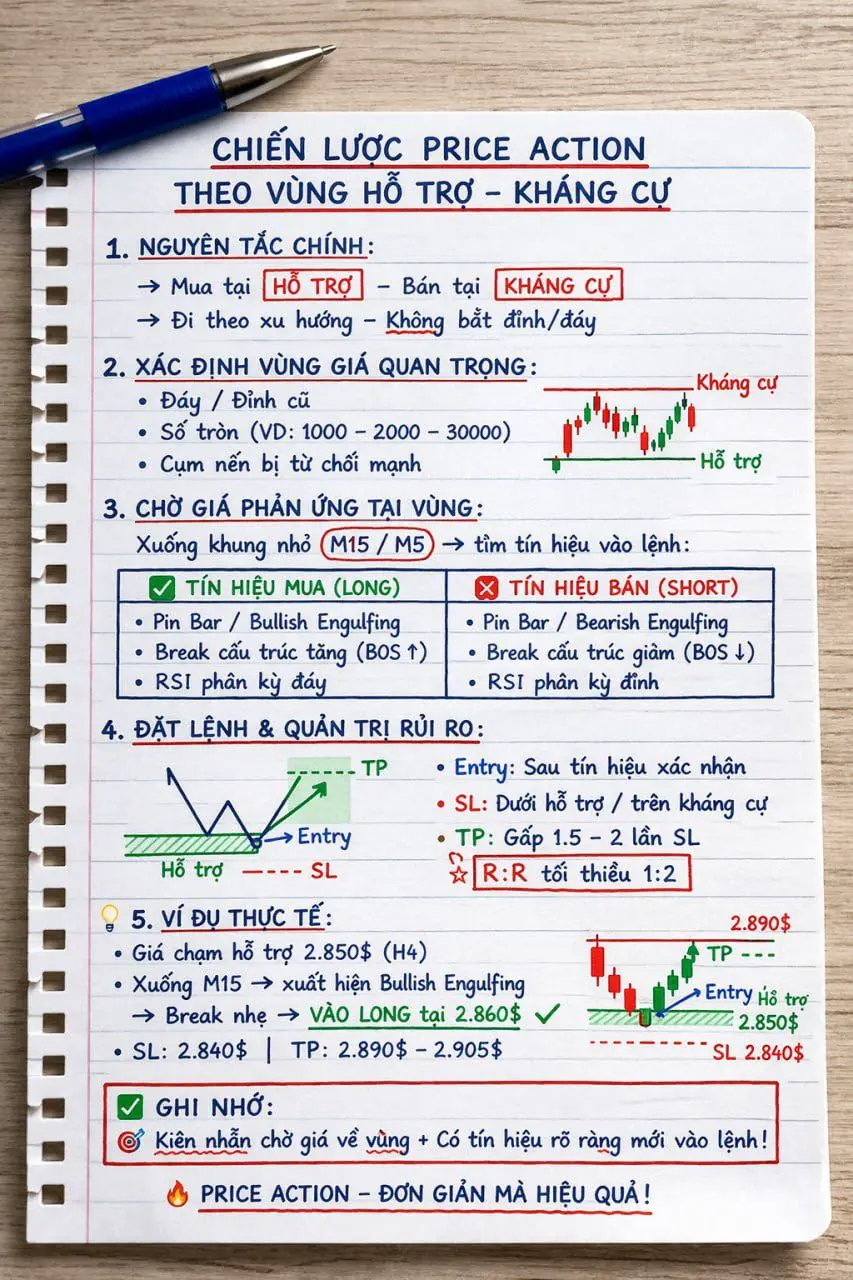 CHIẾN LƯỢC PRICE ACTION
THEO VÙNG HỖ TRỢ – KHÁNG CỰ
1. NGUYÊN TẮC CHÍNH:
→ Mua tại HỖ TRỢ – Bán tại KHÁNG CỰ
→ Đi theo xu hướng – Không bắt đỉnh/đáy
2. XÁC ĐỊNH VÙNG GIÁ QUAN TRỌNG:
• Đáy / Đỉnh cũ
• Số tròn (VD: 1000 – 2000 – 30000)
• Cụm nến bị từ chối mạnh
Kháng cự
Hỗ trợ
3. CHỜ GIÁ PHẢN ỨNG TẠI VÙNG:
Xuống khung nhỏ M15 / M5 → tìm tín hiệu vào lệnh:
✅ TÍN HIỆU MUA (LONG)
• Pin Bar / Bullish Engulfing
• Break cấu trúc tăng (BOS ↑)
• RSI phân kỳ đáy
❎ TÍN HIỆU BÁN (SHORT)
• Pin Bar / Bearish Engulfing
• Break cấu trúc giảm (BOS ↓)
• RSI phân kỳ đỉnh
4. ĐẶT LỆNH & QUẢN TRỊ RỦI RO:
TP
Entry
Hỗ trợ
SL
• Entry: Sau tín hiệu xác nhận
• SL: Dưới hỗ trợ / trên kháng cự
• TP: Gấp 1.5 – 2 lần SL
☆ R:R tối thiểu 1:2
💡 5. VÍ DỤ THỰC TẾ:
• Giá chạm hỗ trợ 2.850$ (H4)
• Xuống M15 → xuất hiện Bullish Engulfing
→ Break nhẹ → VÀO LONG tại 2.860$ ✓
• SL: 2.840$ | TP: 2.890$ – 2.905$
2.890$
TP
Entry
Hỗ trợ
2.850$
SL 2.840$
✅ GHI NHỚ:
🎯 Kiên nhẫn chờ giá về vùng + Có tín hiệu rõ ràng mới vào lệnh!
🔥 PRICE ACTION – ĐƠN GIẢN MÀ HIỆU QUẢ!